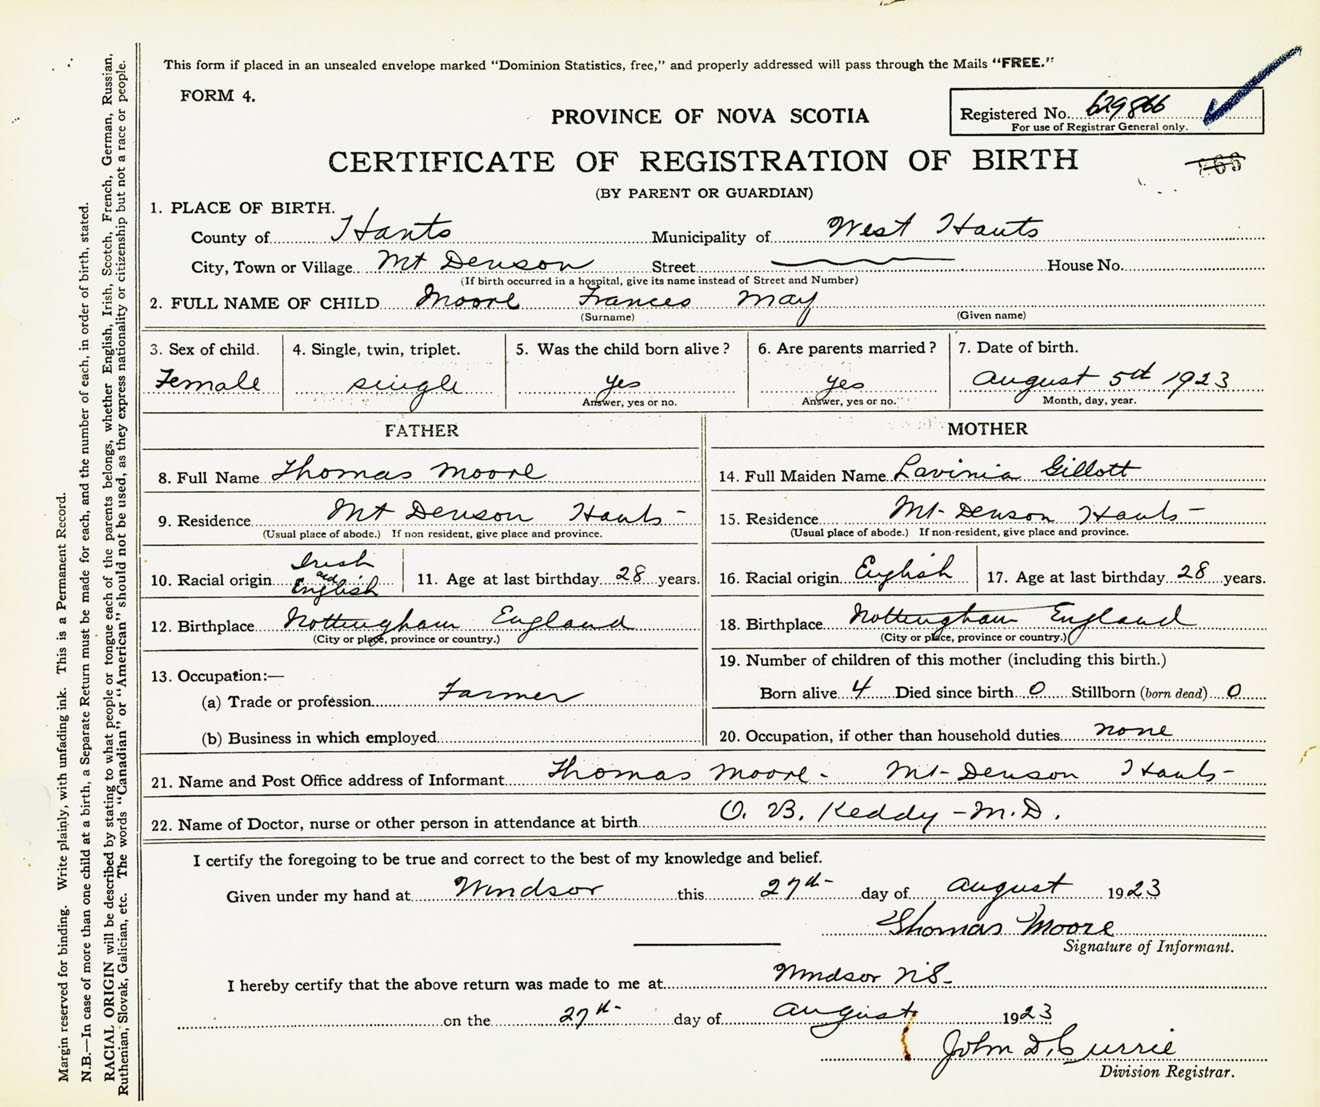 This form if placed in an unsealed envelope marked "Dominion Statistics, free," and properly addressed will pass through the Mails "FREE."
FORM 4.
PROVINCE OF NOVA SCOTIA
Registered No. 629866
For use of Registrar General only.
CERTIFICATE OF REGISTRATION OF BIRTH
(BY PARENT OR GUARDIAN)
1. PLACE OF BIRTH.
County of Hants Municipality of West Hants
City, Town or Village Mt Denson Street House No.
(If birth occurred in a hospital, give its name instead of Street and Number)
2. FULL NAME OF CHILD Moore Frances May
(Surname) (Given name)
3. Sex of child. 4. Single, twin, triplet. 5. Was the child born alive? 6. Are parents married? 7. Date of birth.
Female single yes yes August 5th 1923
Answer, yes or no. Answer, yes or no. Month, day, year.
FATHER
8. Full Name Thomas Moore
9. Residence Mt Denson Hants -
(Usual place of abode.) If non resident, give place and province.
10. Racial origin Irish and English 11. Age at last birthday 28 years.
12. Birthplace Nottingham England
(City or place, province or country.)
13. Occupation:—
(a) Trade or profession Farmer
(b) Business in which employed
MOTHER
14. Full Maiden Name Lavinia Gillott
15. Residence Mt- Denson Hants -
(Usual place of abode.) If non-resident, give place and province.
16. Racial origin English 17. Age at last birthday 28 years.
18. Birthplace Nottingham England
(City or place, province or country.)
19. Number of children of this mother (including this birth.)
Born alive 4 Died since birth 0 Stillborn (born dead) 0
20. Occupation, if other than household duties none
21. Name and Post Office address of Informant Thomas Moore - Mt- Denson Hants -
22. Name of Doctor, nurse or other person in attendance at birth O. B. Keddy - M.D.
I certify the foregoing to be true and correct to the best of my knowledge and belief.
Given under my hand at Windsor this 27th- day of August 1923
Thomas Moore
Signature of Informant.
I hereby certify that the above return was made to me at Windsor N.S.
on the 27th- day of August 1923
John D. Currie
Division Registrar.
Margin reserved for binding. Write plainly, with unfading ink. This is a Permanent Record.
N.B.—In case of more than one child at a birth, a Separate Return must be made for each, and the number of each, in order of birth, stated.
RACIAL ORIGIN will be described by stating to what people or tongue each of the parents belongs, whether English, Irish, Scotch, French, German, Russian,
Ruthenian, Slovak, Galician, etc. The words "Canadian" or "American" should not be used, as they express nationality or citizenship but not a race or people.